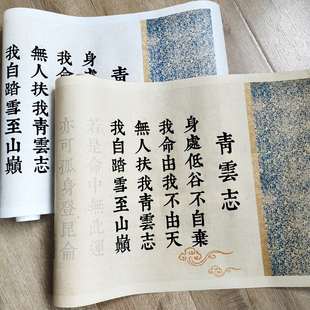 青雲志
身處低谷不自棄
我命由我不由天
無人扶我青雲志
我自踏雪至山巔
青
身處
我命
無人扶我青雲志
我自踏雪至山巔
若是命中無此運
亦可孤身登昆侖